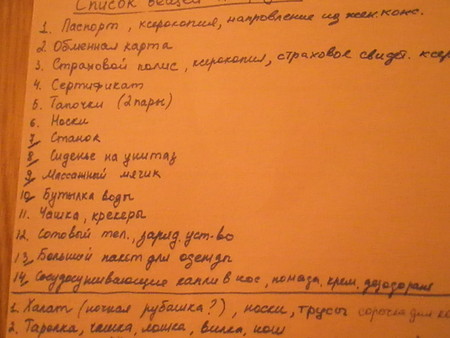 Список вещей
1. Паспорт, ксерокопия, направление из жен. конс.
2. Обменная карта
3. Страховой полис, ксерокопия, страховое свидет. ксер
4. Сертификат
5. Тапочки (2 пары)
6. Носки
7. Станок
8. Сиденье на унитаз
9. Массажный мячик
10. Бутылка воды
11. Чашка, крекеры
12. Сотовый тел., заряд. уст-во
13. Большой пакет для одежды
14. Сосудосуживающие капли в нос, помада, крем, дезодорант
1. Халат (ночная рубашка?), носки, трусы сорочка для
2. Тарелка, чашка, ложка, вилка, нож